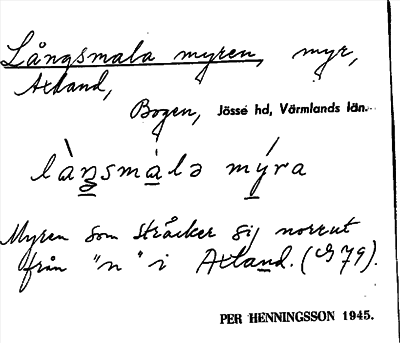 Långsmala myren, myr,
Axland,
Bogen, Jösse hd, Värmlands län.
làṉsma̱lə mý̱ra
Myren som sträcker sig norrut
från "n" i Axland. (G 79).
PER HENNINGSSON 1945.